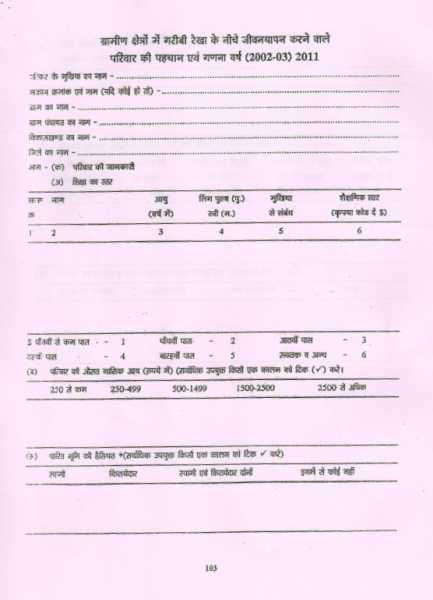 ग्रामीण क्षेत्रों में गरीबी रेखा के नीचे जीवनयापन करने वाले
परिवार की पहचान एवं गणना वर्ष (2002-03) 2011
परिवार के मुखिया का नाम -
मकान क्रमांक एवं नाम (यदि कोई हो तो) -
ग्राम का नाम -
ग्राम पंचायत का नाम -
विकासखण्ड का नाम -
जिले का नाम -
भाग - (क) परिवार की जानकारी
(अ) शिक्षा का स्तर
नाम आयु लिंग पुरुष (पु.) मुखिया शैक्षणिक स्तर
क्र (वर्ष में) स्त्री (म.) से संबंध (कृपया कोड दें $)
1 2 3 4 5 6
$ पाँचवीं से कम पास - - 1 पाँचवीं पास - 2 आठवीं पास - 3
दसवीं पास - 4 बारहवीं पास - 5 स्नातक व अन्य - 6
(ब) परिवार की औसत मासिक आय (रुपये में) (सर्वाधिक उपयुक्त किसी एक कालम को टिक (✓) करें।
250 से कम 250-499 500-1499 1500-2500 2500 से अधिक
भूमि की हैसियत *(सर्वाधिक उपयुक्त किसी एक कालम को टिक ✓ करें)
किरायेदार स्वामी एवं किरायेदार दोनों इनमें से कोई नहीं
103